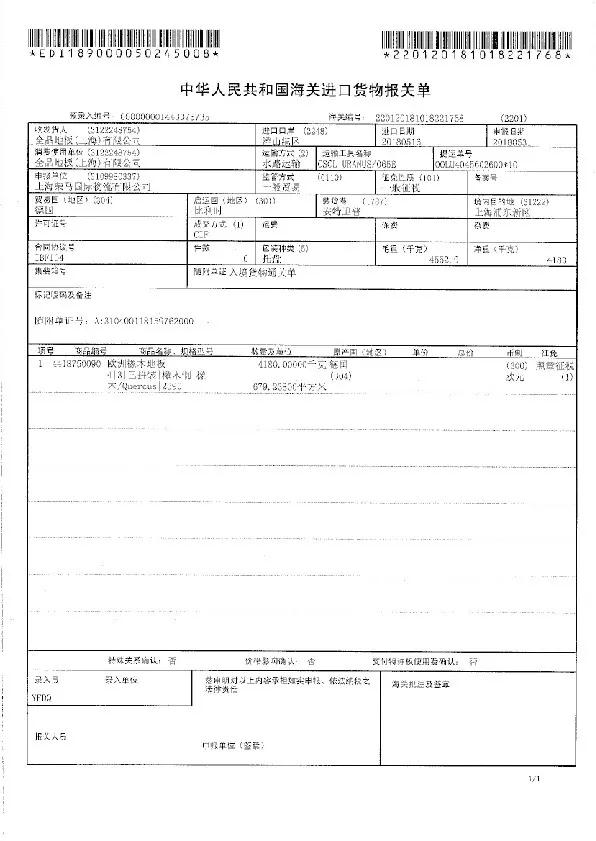 *EDI189000050245008*
*220120181018221768*
中华人民共和国海关进口货物报关单
预录入编号: 海关编号: 220120181018221768 (2201)
收发货人 (3122248754) 进口口岸 (2248) 进口日期 申报日期
全品地板(上海)有限公司 洋山港区 20180515
消费使用单位 (3122248754) 运输方式 (2) 运输工具名称 提运单号
全品地板(上海)有限公司 水路运输 CSCL URANUS/065E OOLU4045602600*10
申报单位 监管方式 (0110) 征免性质 (101) 备案号
上海荣马国际物流有限公司 一般贸易 一般征税
贸易国(地区) (304) 启运国(地区) (301) 装货港 境内目的地 (31222)
德国 比利时 安特卫普 上海浦东新区
许可证号 成交方式 (1) 运费 保费 杂费
CIF
合同协议号 件数 包装种类 (5) 毛重(千克) 净重(千克)
6 托盘 4180
集装箱号 随附单证 入境货物通关单
标记唛码及备注
随附单证号: A:310400118159762000
项号 商品编号 商品名称、规格型号 数量及单位 原产国(地区) 单价 总价 币制 征免
1 4418750090 欧洲橡木地板 4180.00000千克 德国 (300) 照章征税
(304) 欧元 (1)
特殊关系确认: 否 价格影响确认: 否 支付特许权使用费确认: 否
录入员 录入单位 兹申明对以上内容承担如实申报、依法纳税之 海关批注及签章
法律责任
报关人员
申报单位(签章)
1/1